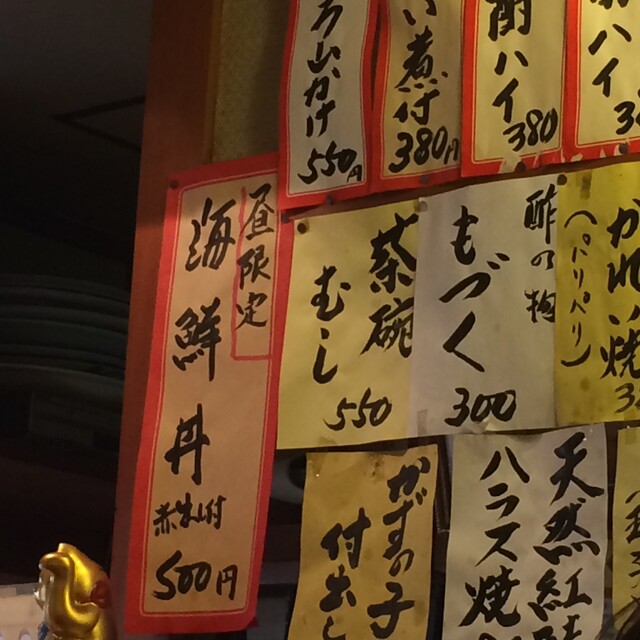 昼限定
海鮮丼
赤出し付
500円
山かけ
550円
煮付
380円
ハイ
380
ハイ
茶碗
むし
550
酢の物
もづく
300
かれい焼
(パリパリ)
かずの子
付出し
天然紅
ハラス焼